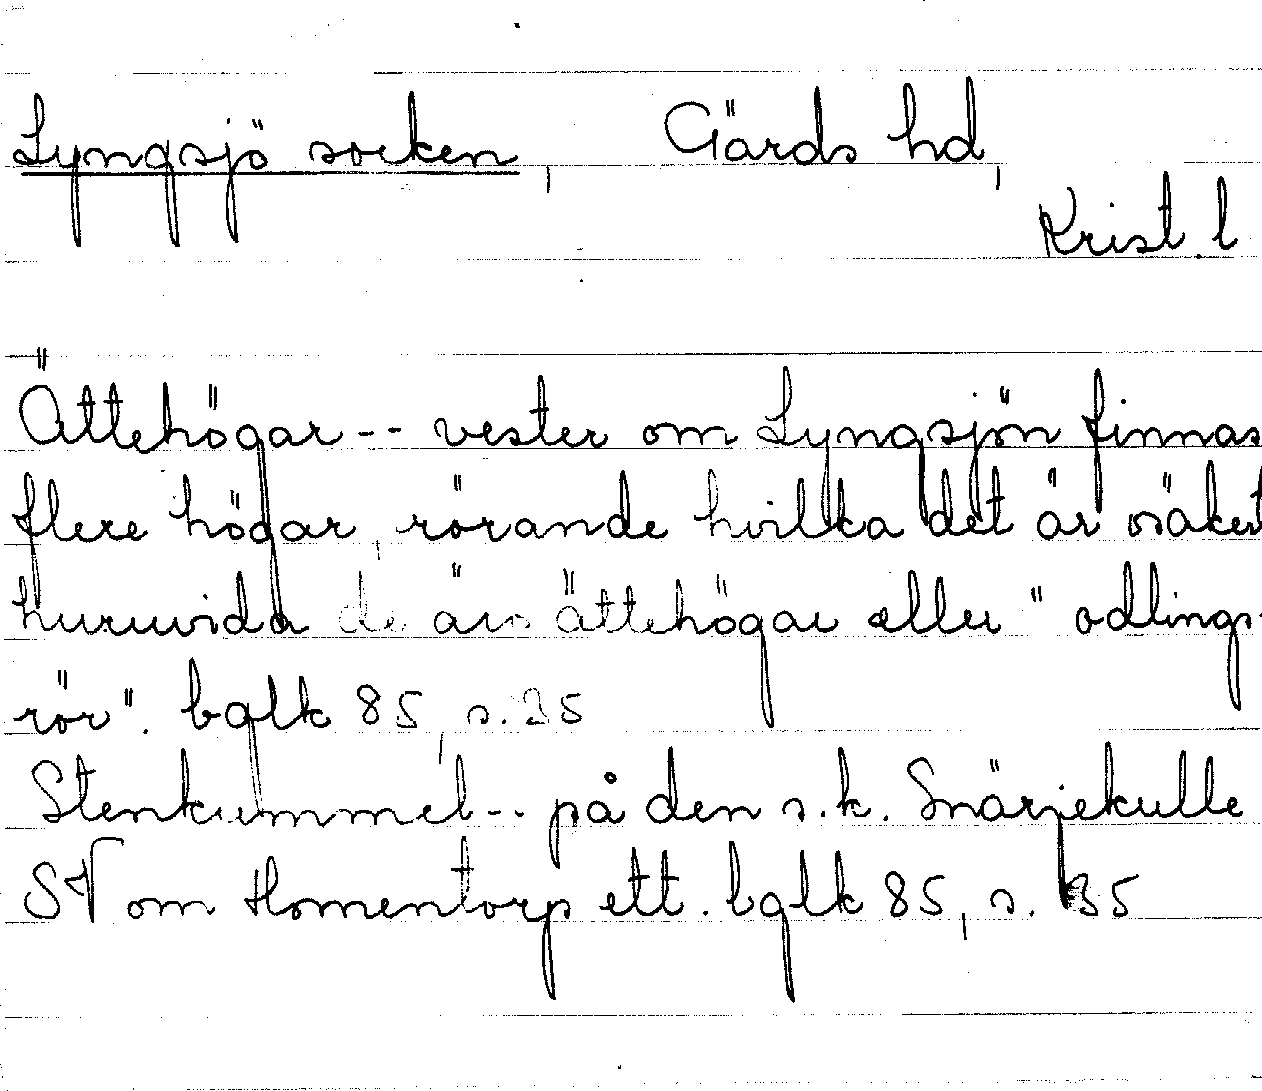 Lyngsjö socken, Gärds hd,
Krist. l
Ättehögar -- vester om Lyngsjön finnas
flere högar, rörande hvilka det är osäkert
huruvida de äro ättehögar eller "odlings-
rör". bglk 85, s. 35
Stenkummel -- på den s.k. Snärjekulle
SV om Homentorp ett. bglk 85, s. 35